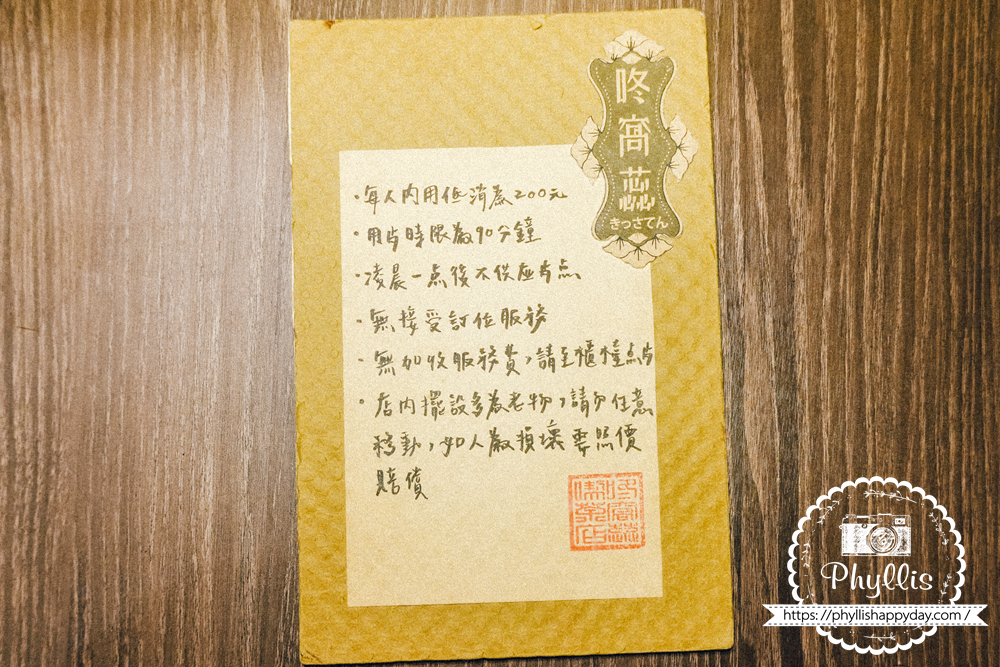 咚窩蕊
きっさてん
·每人內用低消為200元
·用歺時限為90分鐘
·凌晨一点後不供应歺点
·無接受訂位服務
·無加收服務費,請至櫃檯点歺
·店內擺設多為老物,請勿任意
移動,如人為損壞要照價
賠償
Phyllis
https://phyllishappyday.com/